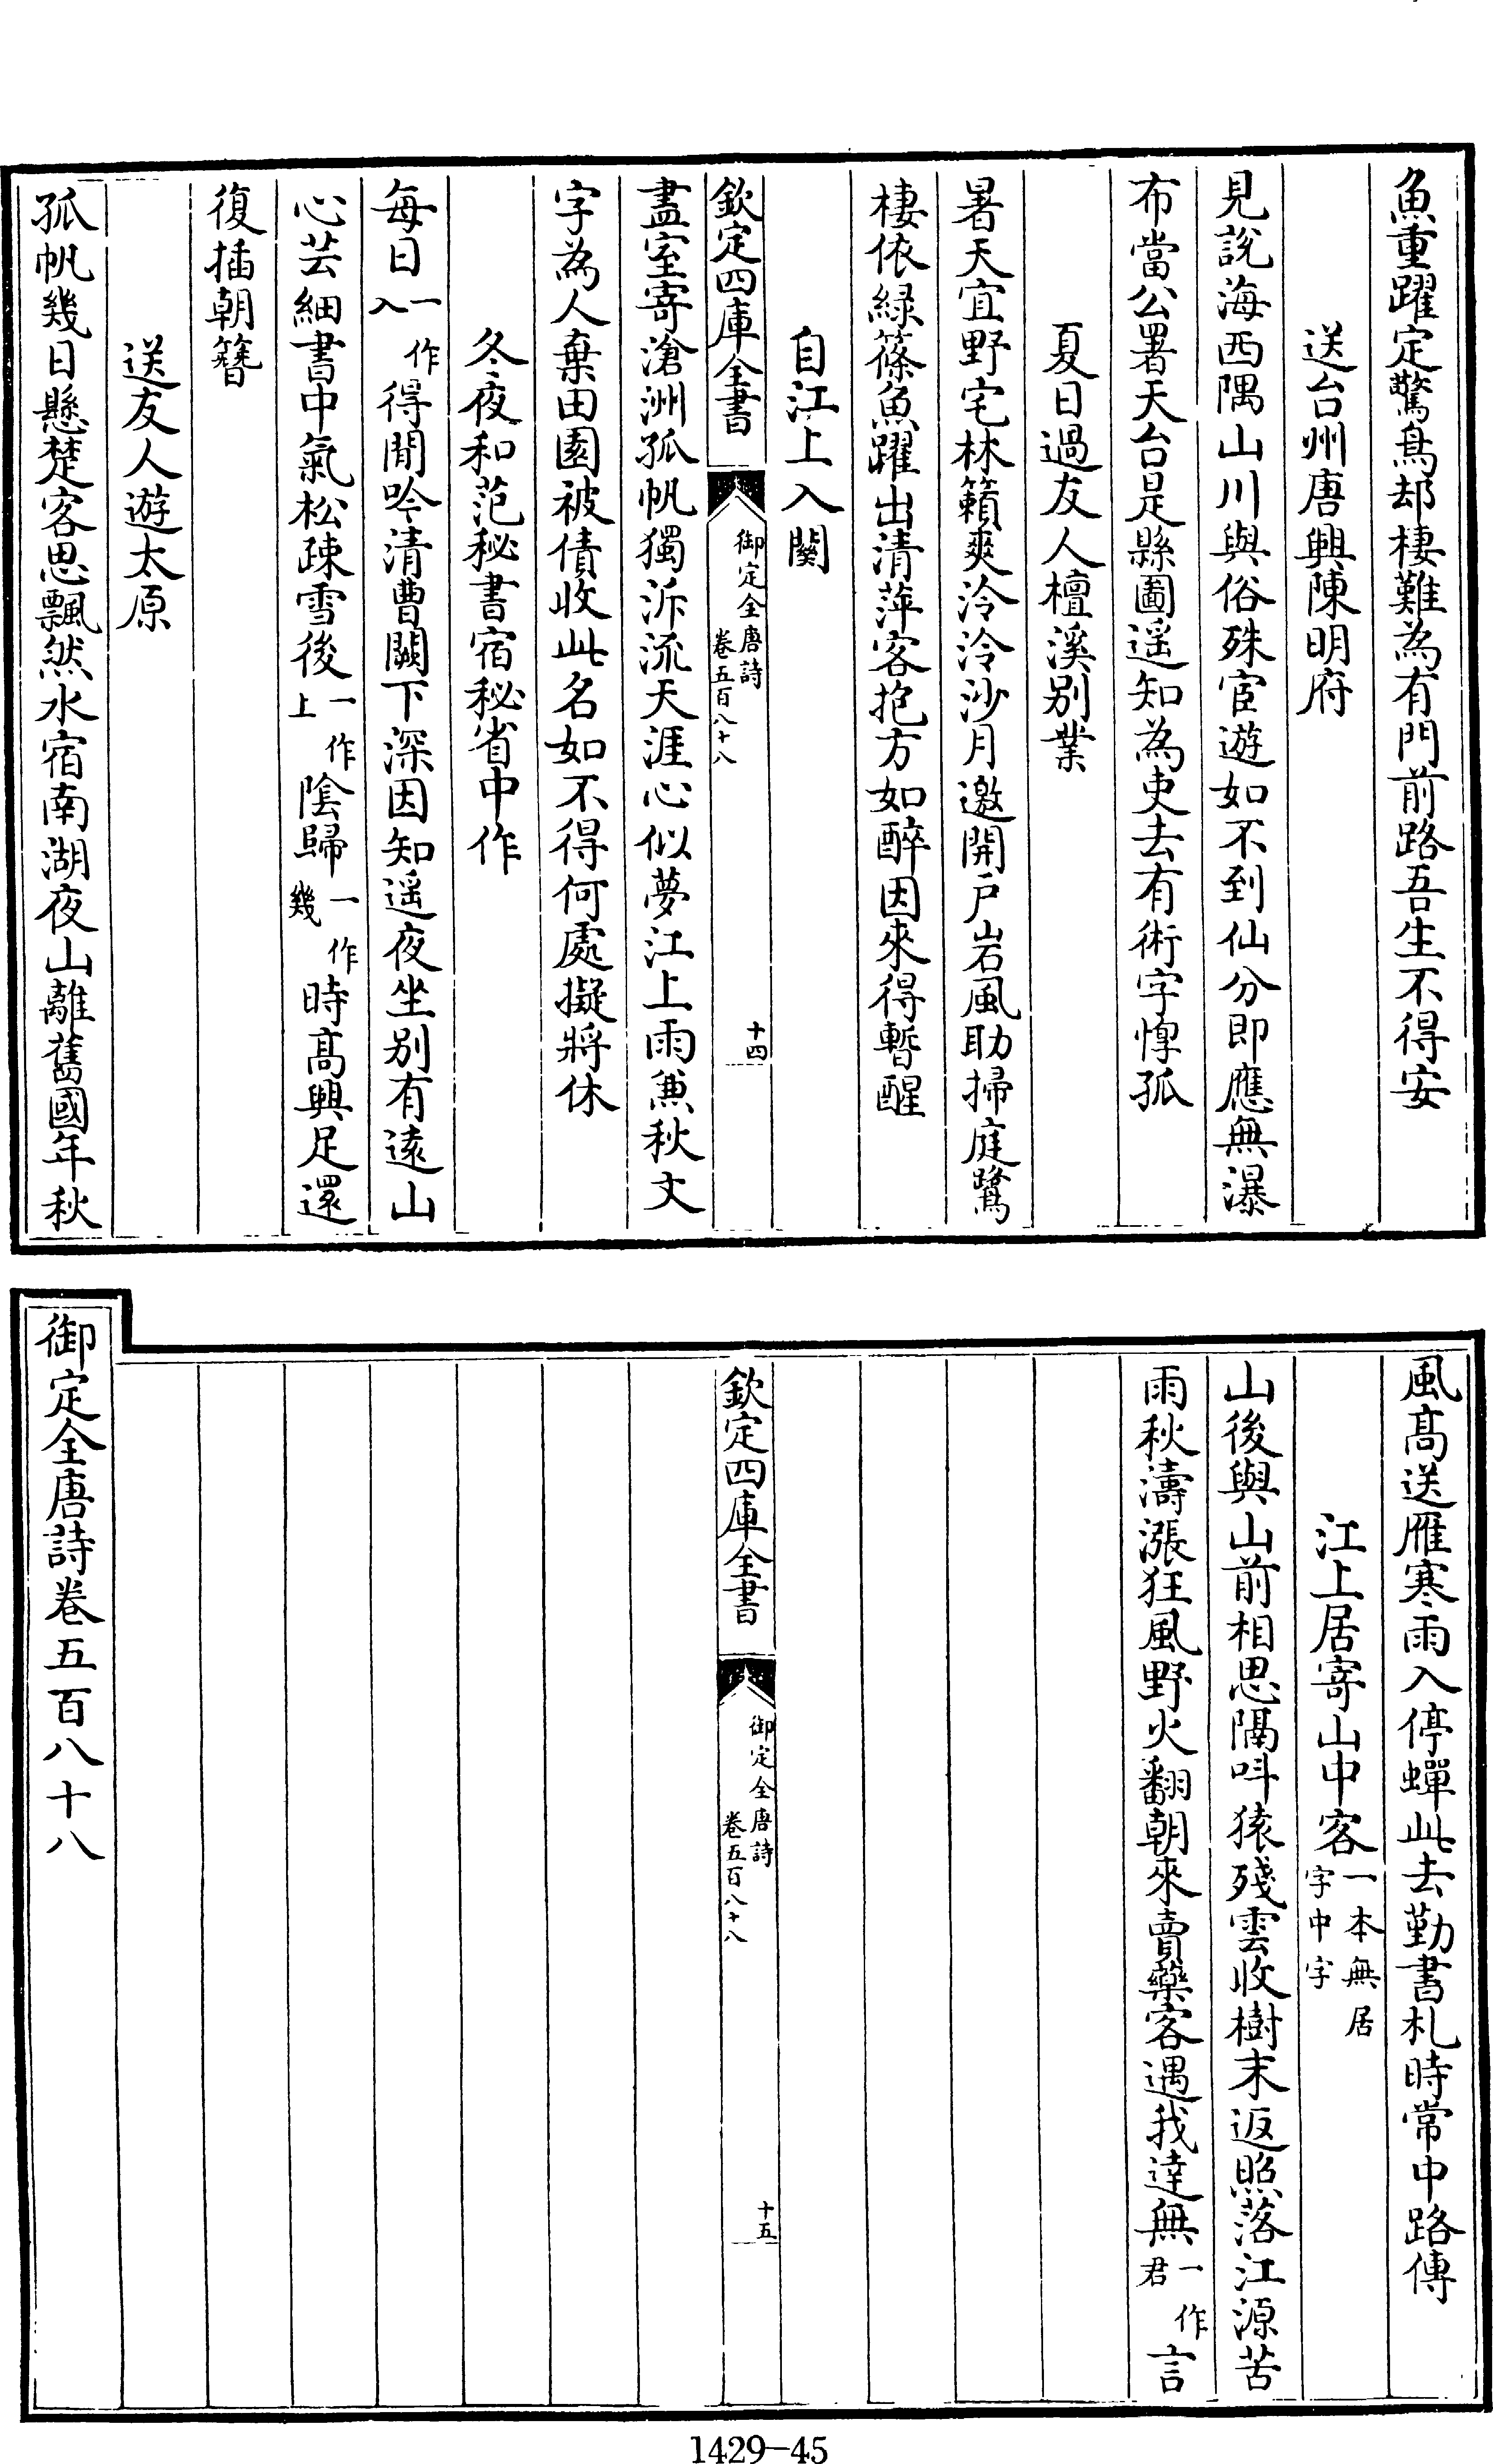 魚重躍定驚鳥却棲難為有門前路吾生不得安
送台州唐興陳明府
見說海西隅山川與俗殊宦遊如不到仙分即應無瀑
布當公署天台是縣圖遥知為吏去有術字惸孤
夏日過友人檀溪别業
暑天宜野宅林籟爽泠泠沙月邀開戸岩風助掃庭鷺
棲依緑篠魚躍出清萍客抱方如醉因來得暫醒
自江上入關
欽定四庫全書
御定全唐詩
卷五百八十八
十四
盡室寄滄洲孤帆獨泝流天涯心似夢江上雨兼秋文
字為人棄田園被債收此名如不得何處擬將休
冬夜和范秘書宿秘省中作
每日一作入得閒吟清曹闕下深因知遥夜坐别有遠山
心芸細書中氣松疎雪後一作上陰歸一作幾時髙興足還
復插朝簪
送友人遊太原
孤帆幾日懸楚客思飄然水宿南湖夜山離舊國年秋
風髙送雁寒雨入停蟬此去勤書札時常中路傳
江上居寄山中客一本無居字中字
山後與山前相思隔呌猿殘雲收樹末返照落江源苦
雨秋濤漲狂風野火翻朝來賣藥客遇我逹無一作君言
欽定四庫全書
御定全唐詩
卷五百八十八
十五
御定全唐詩卷五百八十八
1429-45